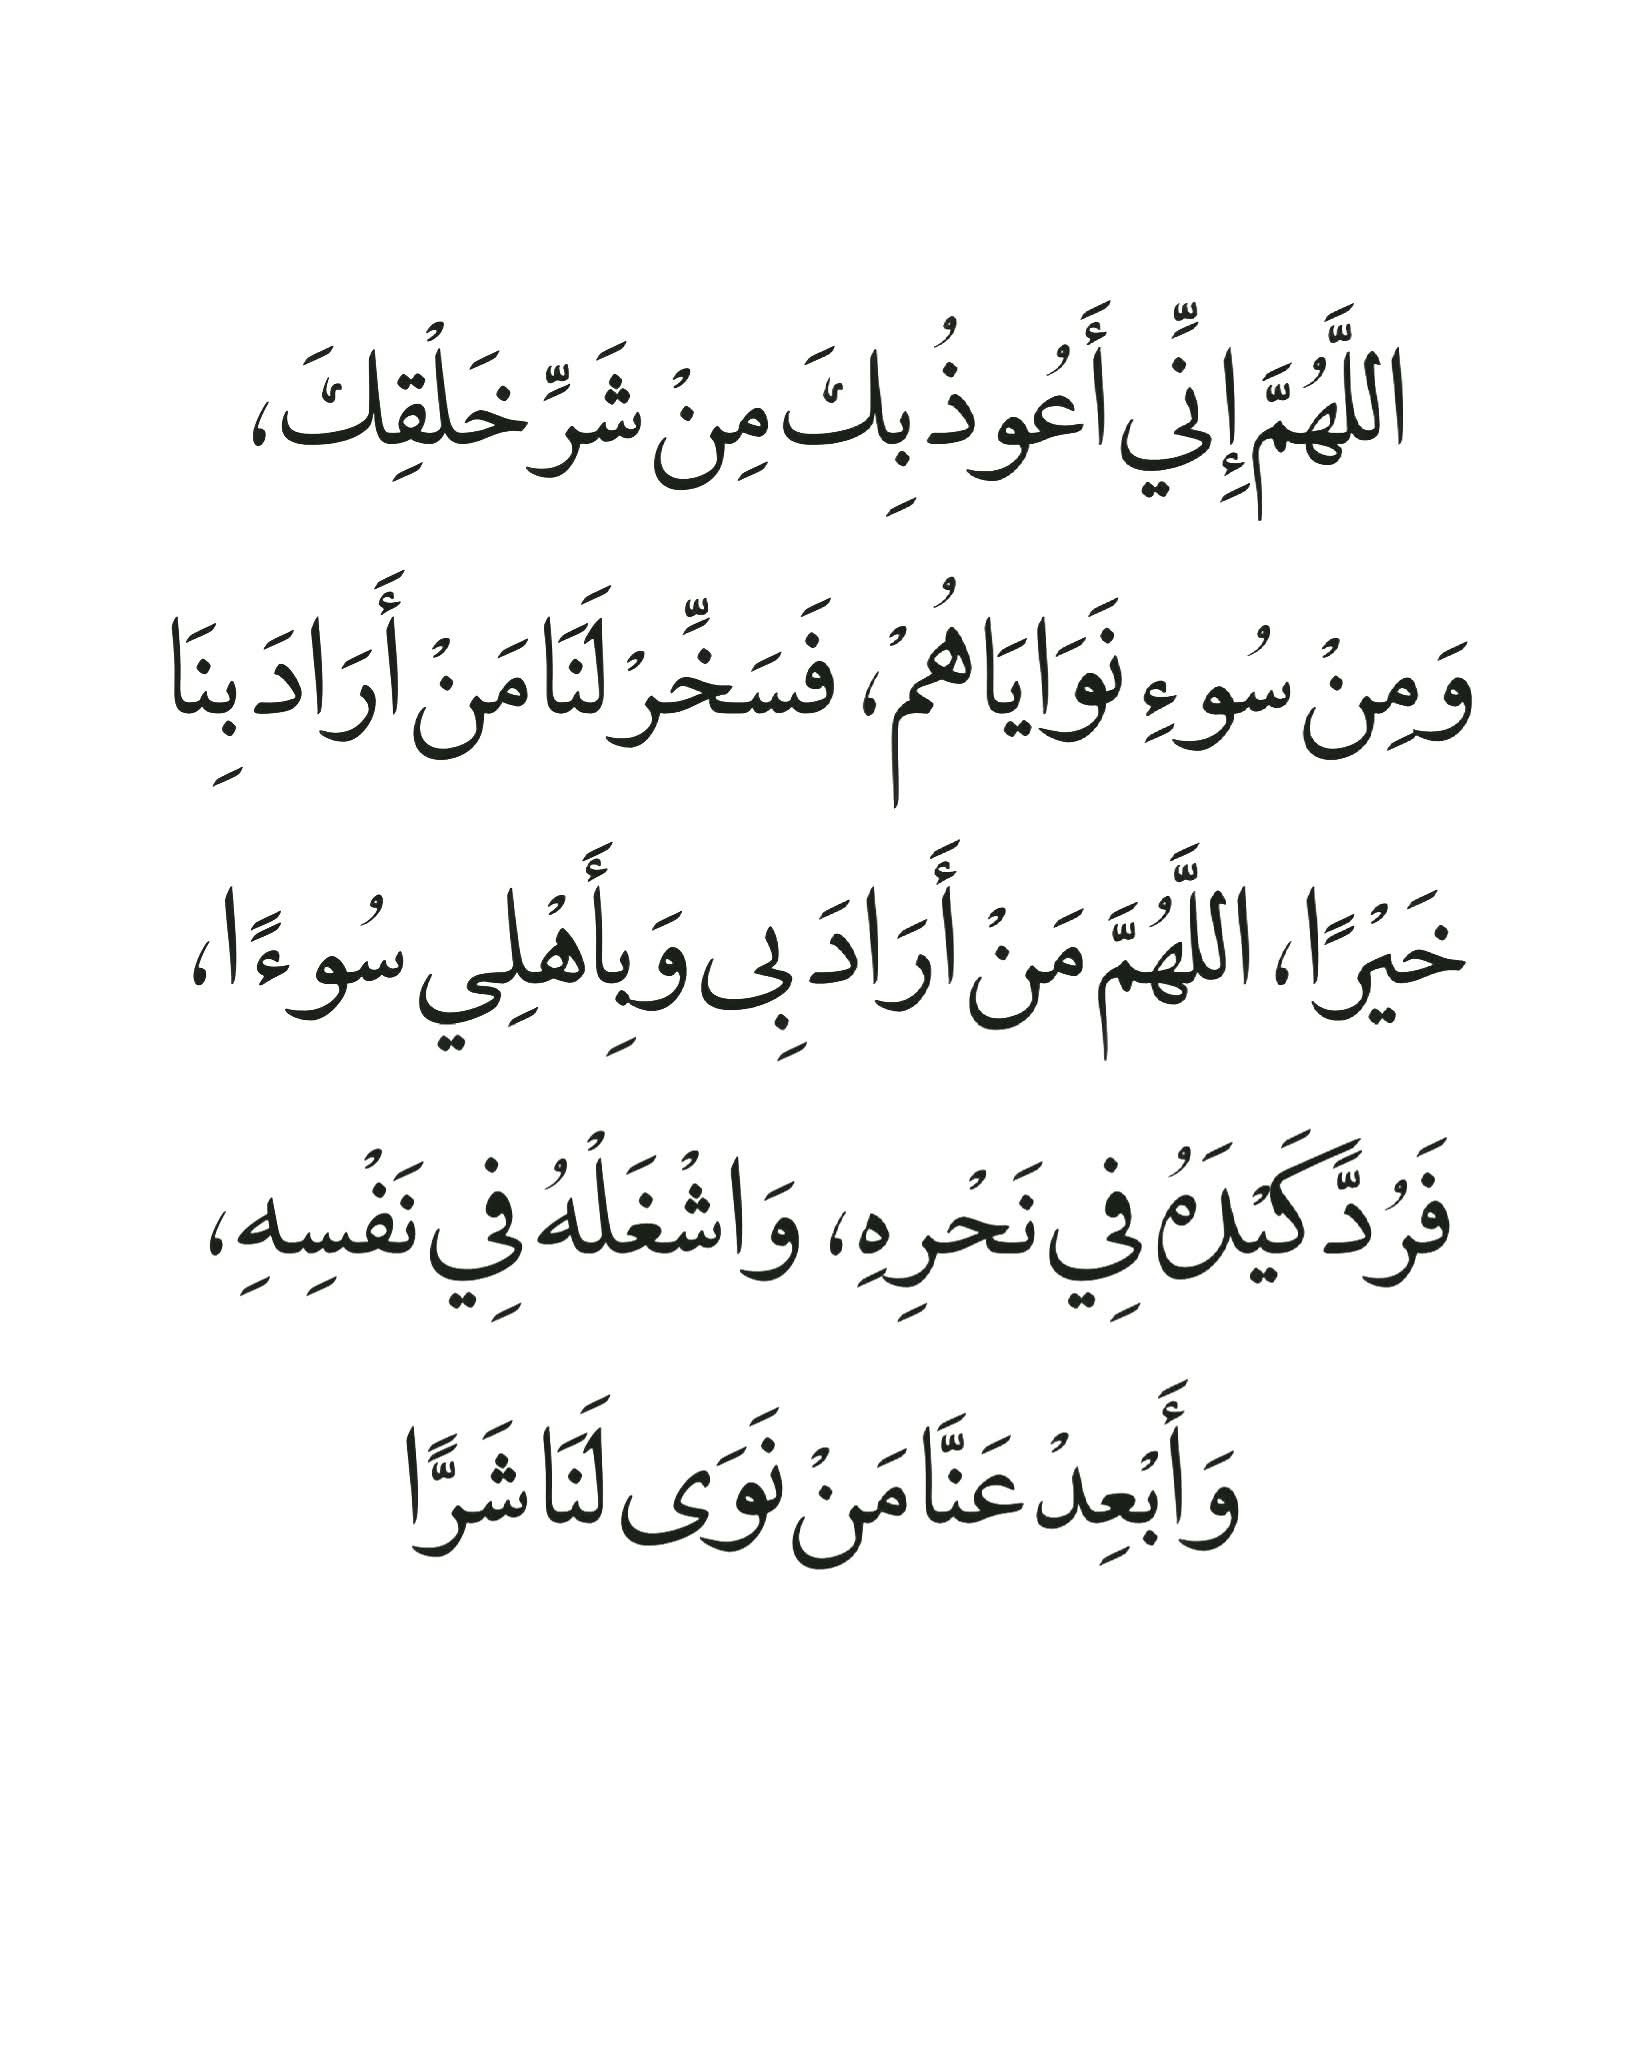 اللَّهُمَّ إِنِّي أَعُوذُ بِكَ مِنْ شَرِّ خَلْقِكَ،
وَمِنْ سُوءِ نَوَايَاهُمْ، فَسَخِّرْ لَنَا مَنْ أَرَادَ بِنَا
خَيْرًا، اللَّهُمَّ مَنْ أَرَادَ بِى وَبِأَهْلِي سُوءًا،
فَرُدَّ كَيْدَهُ فِي نَحْرِهِ، وَاشْغَلْهُ فِي نَفْسِهِ،
وَأَبْعِدْ عَنَّا مَنْ نَوَى لَنَا شَرًّا